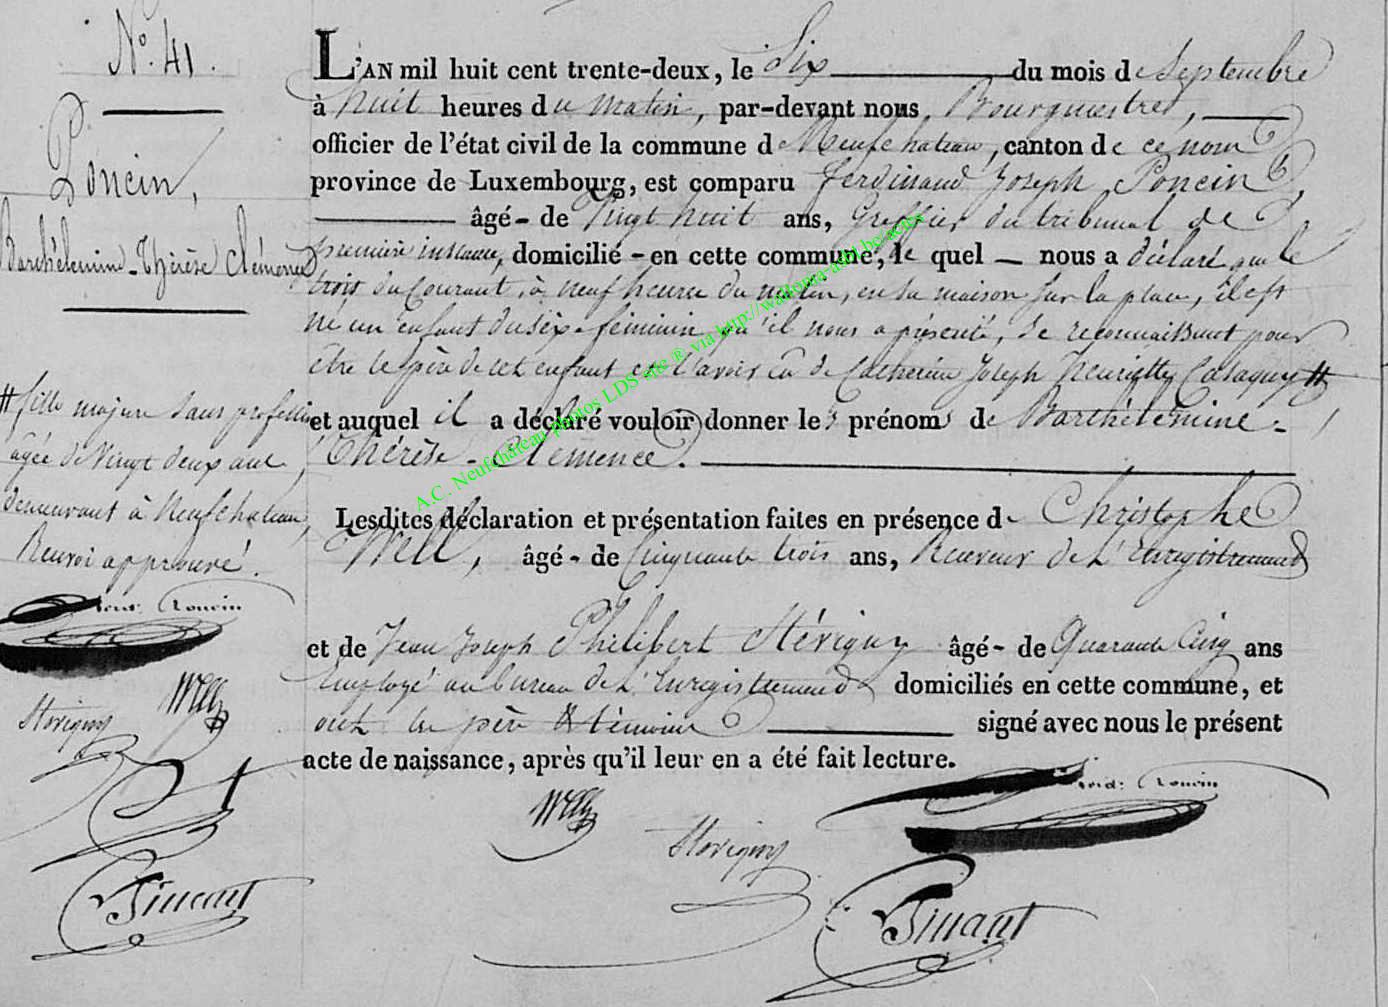 N.º 41.
Poncin,
Barthélemine-Thérèse Clémence
L'AN mil huit cent trente-deux, le Six du mois de Septembre
à huit heures du matin, par-devant nous Bourgmestre,
officier de l'état civil de la commune de Neufchateau, canton de ce nom
province de Luxembourg, est comparu Ferdinand Joseph Poncin,
âgé - de Vingt huit ans, Greffier du tribunal de
première instance, domicilié - en cette commune, le quel — nous a déclaré que le
trois du Courant, à neuf heures du matin, en sa maison sur la place, il est
né un enfant du sexe féminin qu'il nous a présenté, se reconnaissant pour
être le père de cet enfant et l'avoir eû de Catherine Joseph Henriette #
et auquel il a déclaré vouloir donner les prénoms de Barthélemine -
Thérèse - Clémence.
# fille majeure sans profession
agée de Vingt deux ans,
demeurant à Neufchateau,
Renvoi approuvé.
Lesdites déclaration et présentation faites en présence de Christophe
Well, âgé - de Cinquante trois ans, Receveur de L'Enregistrement
et de Jean Joseph Philibert Hérigny âgé - de Quarante Cinq ans
Employé au bureau de L'Enregistrement domiciliés en cette commune, et
ont le père & témoins signé avec nous le présent
acte de naissance, après qu'il leur en a été fait lecture.
Poncin
Well
Poncin
Well
A.C. Neufchâteau photos LDS site ® via http://wallonia-asbl.be/actes